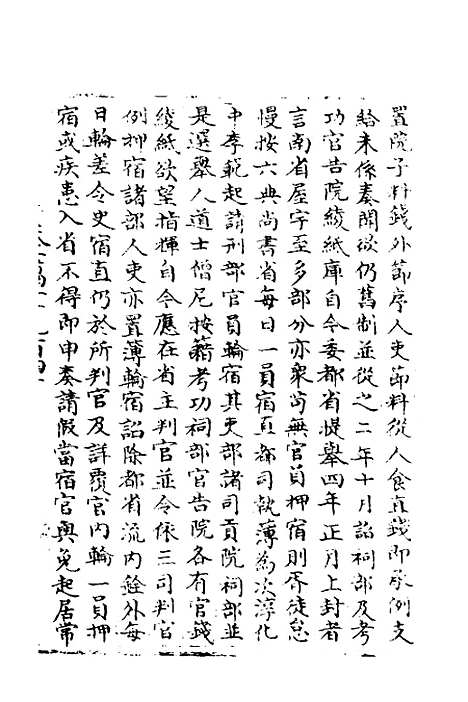 置院子料錢外節序人吏節料從人食直錢即承例支
給未係奏聞欲仍舊制並從之二年十月詔祠部及考
功官告院綾紙庫自今委都省提舉四年正月上封者
言南省屋宇至多部分亦衆苟無官員押宿則胥徒怠
慢按六典尚書省每日一員宿直都司執簿為次淳化
中李範起請刑部官員輪宿其吏部諸司貢院祠部並
是選舉人道士僧尼按籍考功祠部官告院各有官錢
綾紙欲望指揮自今應在省主判官並令依三司判官
例押宿諸部人吏亦置簿輪宿詔除都省流內銓外每
日輪差令史宿直仍於所判官及詳覆官內輪一員押
宿或疾患入省不得即申奏請假當宿官與免起居常